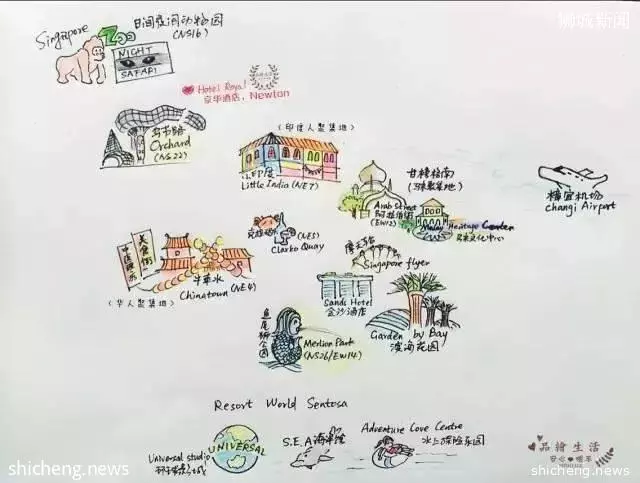 狮城新闻
Singapore
Zoo
日间夜间动物园
(NS16)
NIGHT
SAFARI
Hotel Royal
京华酒店, Newton
乌节路
Orchard
(NS22)
(印度人聚集地)
小印度
Little India (NE7)
甘榜格南
(马来聚集地)
Arab Street
阿拉伯街
(EW12)
Malay Heritage Center
马来文化中心
樟宜机场
Changi Airport
克拉码头
(NE5)
Clarke Quay
美食街
牛车水
Chinatown (NE4)
(华人聚集地)
摩天轮
Singapore flyer
Sands Hotel
金沙酒店
Garden by Bay
滨海花园
鱼尾狮公园
Merlion Park
(NS26/EW14)
Resort World Sentosa
UNIVERSAL
Universal studio
环球影城
S.E.A 海洋馆
Adventure Cove Centre
水上探险乐园
品绘生活
shicheng.news
shicheng.news